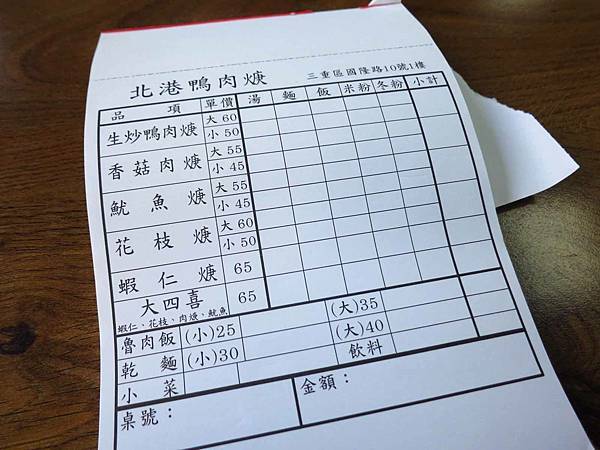 北港鴨肉焿
三重區國隆路10號1樓
品項 單價 湯 麵 飯 米粉 冬粉 小計
生炒鴨肉焿 大 60
小 50
香菇肉焿 大 55
小 45
魷魚焿 大 55
小 45
花枝焿 大 60
小 50
蝦仁焿 65
大四喜 65
蝦仁、花枝、肉焿、魷魚
魯肉飯 (小)25 (大)35
乾麵 (小)30 (大)40
小菜 飲料
桌號： 金額：